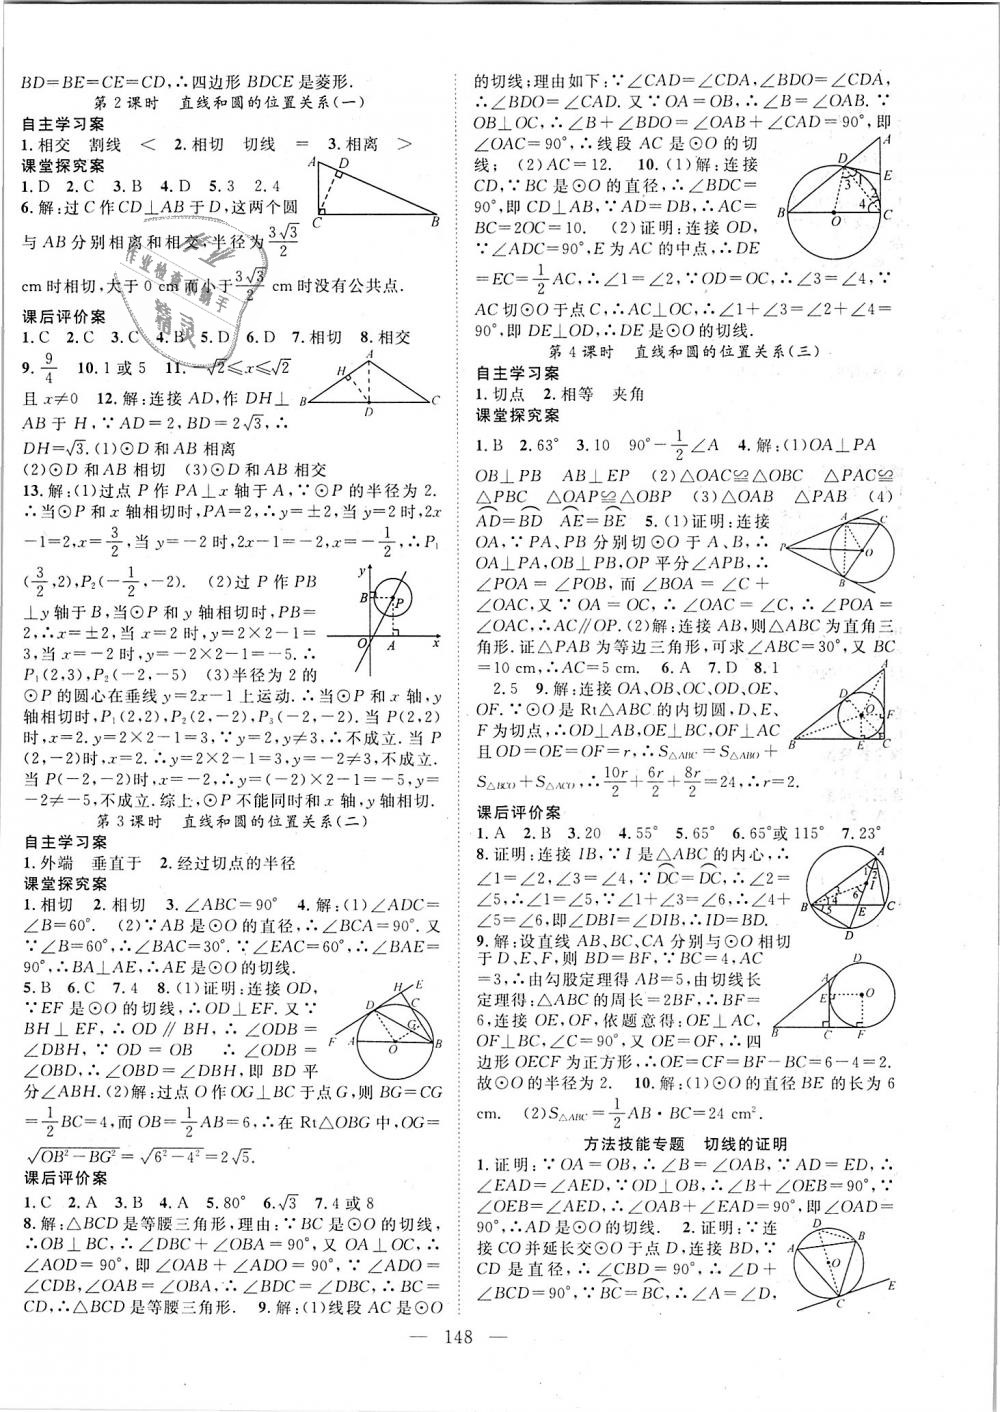 BD=BE=CE=CD,∴四边形 BDCE 是菱形.
第 2 课时 直线和圆的位置关系(一)
自主学习案
1.相交 割线 < 2.相切 切线 = 3.相离 >
课堂探究案
1.D 2.C 3.B 4.D 5.3 2.4
6.解:过 C 作 CD⊥AB 于 D,这两个圆
与 AB 分别相离和相交,半径为 3√3/2
cm 时相切,大于 0 cm 而小于 3√3/2 cm 时没有公共点.
课后评价案
1.C 2.C 3.C 4.B 5.D 6.D 7.相切 8.相交
9. 9/4 10.1 或 5 11.-√2≤x≤√2
且 x≠0 12.解:连接 AD,作 DH⊥
AB 于 H,∵AD=2,BD=2√3,∴
DH=√3.(1)⊙D 和 AB 相离
(2)⊙D 和 AB 相切 (3)⊙D 和 AB 相交
13.解:(1)过点 P 作 PA⊥x 轴于 A,∵⊙P 的半径为 2.
∴当⊙P 和 x 轴相切时,PA=2,∴y=±2,当 y=2 时,2x
-1=2,x=3/2,当 y=-2 时,2x-1=-2,x=-1/2,∴P₁
(3/2,2),P₂(-1/2,-2). (2)过 P 作 PB
⊥y 轴于 B,当⊙P 和 y 轴相切时,PB=
2,∴x=±2,当 x=2 时,y=2×2-1=
3,当 x=-2 时,y=-2×2-1=-5.∴
P₁(2,3),P₂(-2,-5) (3)半径为 2 的
⊙P 的圆心在垂线 y=2x-1 上运动.∴当⊙P 和 x 轴,y
轴相切时,P₁(2,2),P₂(2,-2),P₃(-2,-2). 当 P(2,2)
时,x=2,y=2×2-1=3,∵y=2,y≠3,∴不成立. 当 P
(2,-2)时,x=2.∴y=2×2-1=3,y=-2≠3,不成立.
当 P(-2,-2)时,x=-2,∴y=(-2)×2-1=-5,y=
-2≠-5,不成立.综上,⊙P 不能同时和 x 轴,y 轴相切.
第 3 课时 直线和圆的位置关系(二)
自主学习案
1.外端 垂直于 2.经过切点的半径
课堂探究案
1.相切 2.相切 3.∠ABC=90° 4.解:(1)∠ADC=
∠B=60°. (2)∵AB 是⊙O 的直径,∴∠BCA=90°. 又
∵∠B=60°,∴∠BAC=30°.∵∠EAC=60°,∴∠BAE=
90°,∴BA⊥AE,∴AE 是⊙O 的切线.
5.B 6.C 7.4 8.(1)证明:连接 OD,
∵EF 是⊙O 的切线,∴OD⊥EF. 又∵
BH⊥EF,∴OD∥BH,∴∠ODB=
∠DBH,∵OD=OB ∴∠ODB=
∠OBD,∴∠OBD=∠DBH,即 BD 平
分∠ABH. (2)解:过点 O 作 OG⊥BC 于点 G,则 BG=CG
=1/2BC=4,而 OB=1/2AB=6,∴在 Rt△OBG 中,OG=
√(OB²-BG²)=√(6²-4²)=2√5.
课后评价案
1.C 2.A 3.B 4.A 5.80° 6.√3 7.4 或 8
8.解:△BCD 是等腰三角形,理由:∵BC 是⊙O 的切线,
∴OB⊥BC,∴∠DBC+∠OBA=90°. 又 OA⊥OC,∴
∠AOD=90°,即∠OAB+∠ADO=90°,∵∠ADO=
∠CDB,∠OAB=∠OBA,∴∠BDC=∠DBC,∴BC=
CD,∴△BCD 是等腰三角形. 9.解:(1)线段 AC 是⊙O
的切线;理由如下:∵∠CAD=∠CDA,∠BDO=∠CDA,
∴∠BDO=∠CAD. 又∵OA=OB,∴∠B=∠OAB. ∵
OB⊥OC,∴∠B+∠BDO=∠OAB+∠CAD=90°,即
∠OAC=90°,∴线段 AC 是⊙O 的切
线; (2)AC=12. 10.(1)解:连接
CD,∵BC 是⊙O 的直径,∴∠BDC=
90°,即 CD⊥AB,∵AD=DB,∴AC=
BC=2OC=10. (2)证明:连接 OD,
∵∠ADC=90°,E 为 AC 的中点,∴DE
=EC=1/2AC,∴∠1=∠2,∵OD=OC,∴∠3=∠4,∵
AC 切⊙O 于点 C,∴AC⊥OC,∴∠1+∠3=∠2+∠4=
90°,即 DE⊥OD,∴DE 是⊙O 的切线.
第 4 课时 直线和圆的位置关系(三)
自主学习案
1.切点 2.相等 夹角
课堂探究案
1.B 2.63° 3.10 90°-1/2∠A 4.解:(1)OA⊥PA
OB⊥PB AB⊥EP (2)△OAC≌△OBC △PAC≌
△PBC △OAP≌△OBP (3)△OAB △PAB (4)
AD=BD AE=BE 5.(1)证明:连接
OA,∵PA、PB 分别切⊙O 于 A、B,∴
OA⊥PA,OB⊥PB,OP 平分∠APB,∴
∠POA=∠POB,而∠BOA=∠C+
∠OAC,又∵OA=OC,∴∠OAC=∠C,∴∠POA=
∠OAC,∴AC∥OP. (2)解:连接 AB,则△ABC 为直角三
角形. 证△PAB 为等边三角形,可求∠ABC=30°,又 BC
=10 cm,∴AC=5 cm. 6.A 7.D 8.1
2.5 9.解:连接 OA、OB、OC、OD、OE、
OF. ∵⊙O 是 Rt△ABC 的内切圆,D、E、
F 为切点,∴OD⊥AB,OE⊥BC,OF⊥AC
且 OD=OE=OF=r,∴S△ABC=S△ABO+
S△BCO+S△ACO,∴10r/2+6r/2+8r/2=24,∴r=2.
课后评价案
1.A 2.B 3.20 4.55° 5.65° 6.65°或 115° 7.23°
8.证明:连接 IB,∵I 是△ABC 的内心,∴
∠1=∠2,∠3=∠4,∵DC=DC,∴∠2=
∠5,∴∠1=∠5,∵∠1+∠3=∠6,∠4+
∠5=∠6,即∠DBI=∠DIB,∴ID=BD.
9.解:设直线 AB、BC、CA 分别与⊙O 相切
于 D、E、F,则 BD=BF,∵BC=4,AC
=3,∴由勾股定理得 AB=5,由切线长
定理得:△ABC 的周长=2BF,∴BF=
6,连接 OE,OF,依题意得:OE⊥AC,
OF⊥BC,∠C=90°,又 OE=OF,∴四
边形 OECF 为正方形,∴OE=CF=BF-BC=6-4=2.
故⊙O 的半径为 2. 10.解:(1)⊙O 的直径 BE 的长为 6
cm. (2)S△ABC=1/2AB·BC=24 cm².
方法技能专题 切线的证明
1.证明:∵OA=OB,∴∠B=∠OAB,∵AD=ED,∴
∠EAD=∠AED,∵OB⊥OC,∴∠B+∠OEB=90°,∵
∠OEB=∠AED,∴∠OAB+∠EAD=90°,即∠OAD=
90°,∴AD 是⊙O 的切线. 2.证明:∵连
接 CO 并延长交⊙O 于点 D,连接 BD,∵
CD 是直径,∴∠CBD=90°,∴∠D+
∠BCD=90°,∵BC=BC,∴∠A=∠D,
— 148 —